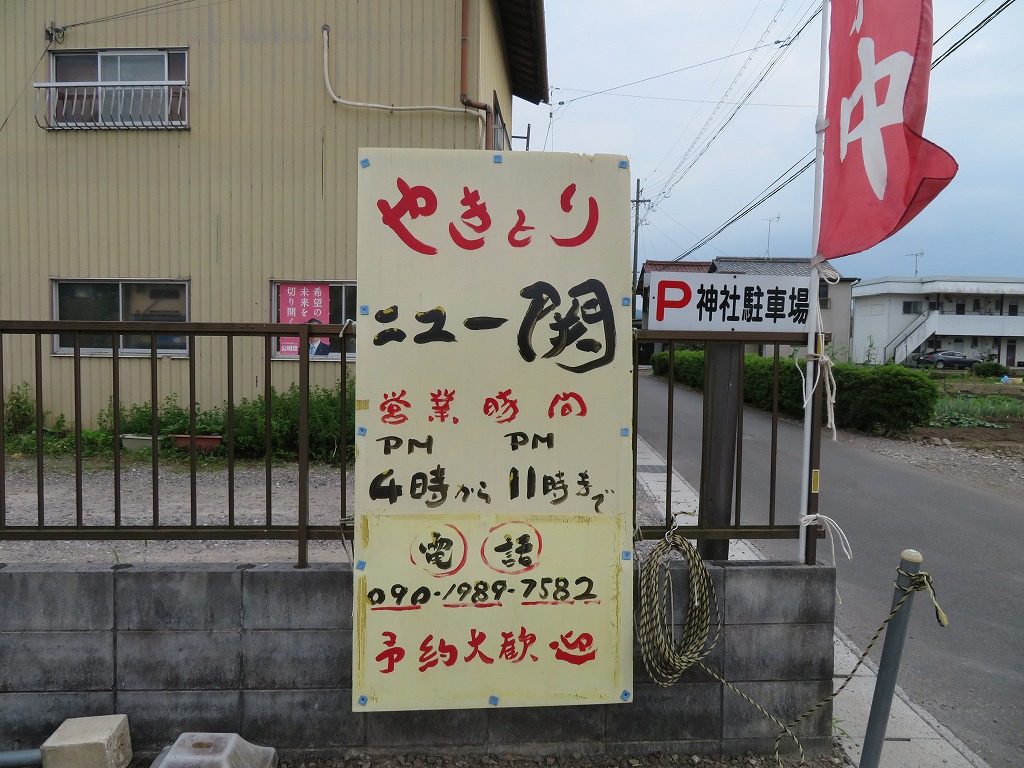 やきとり
ニュー関
営業時間
PM PM
4時から 11時まで
電話
090-1989-7582
予約大歓迎
P 神社駐車場
中
希望の
未来を
切り開く
公明党